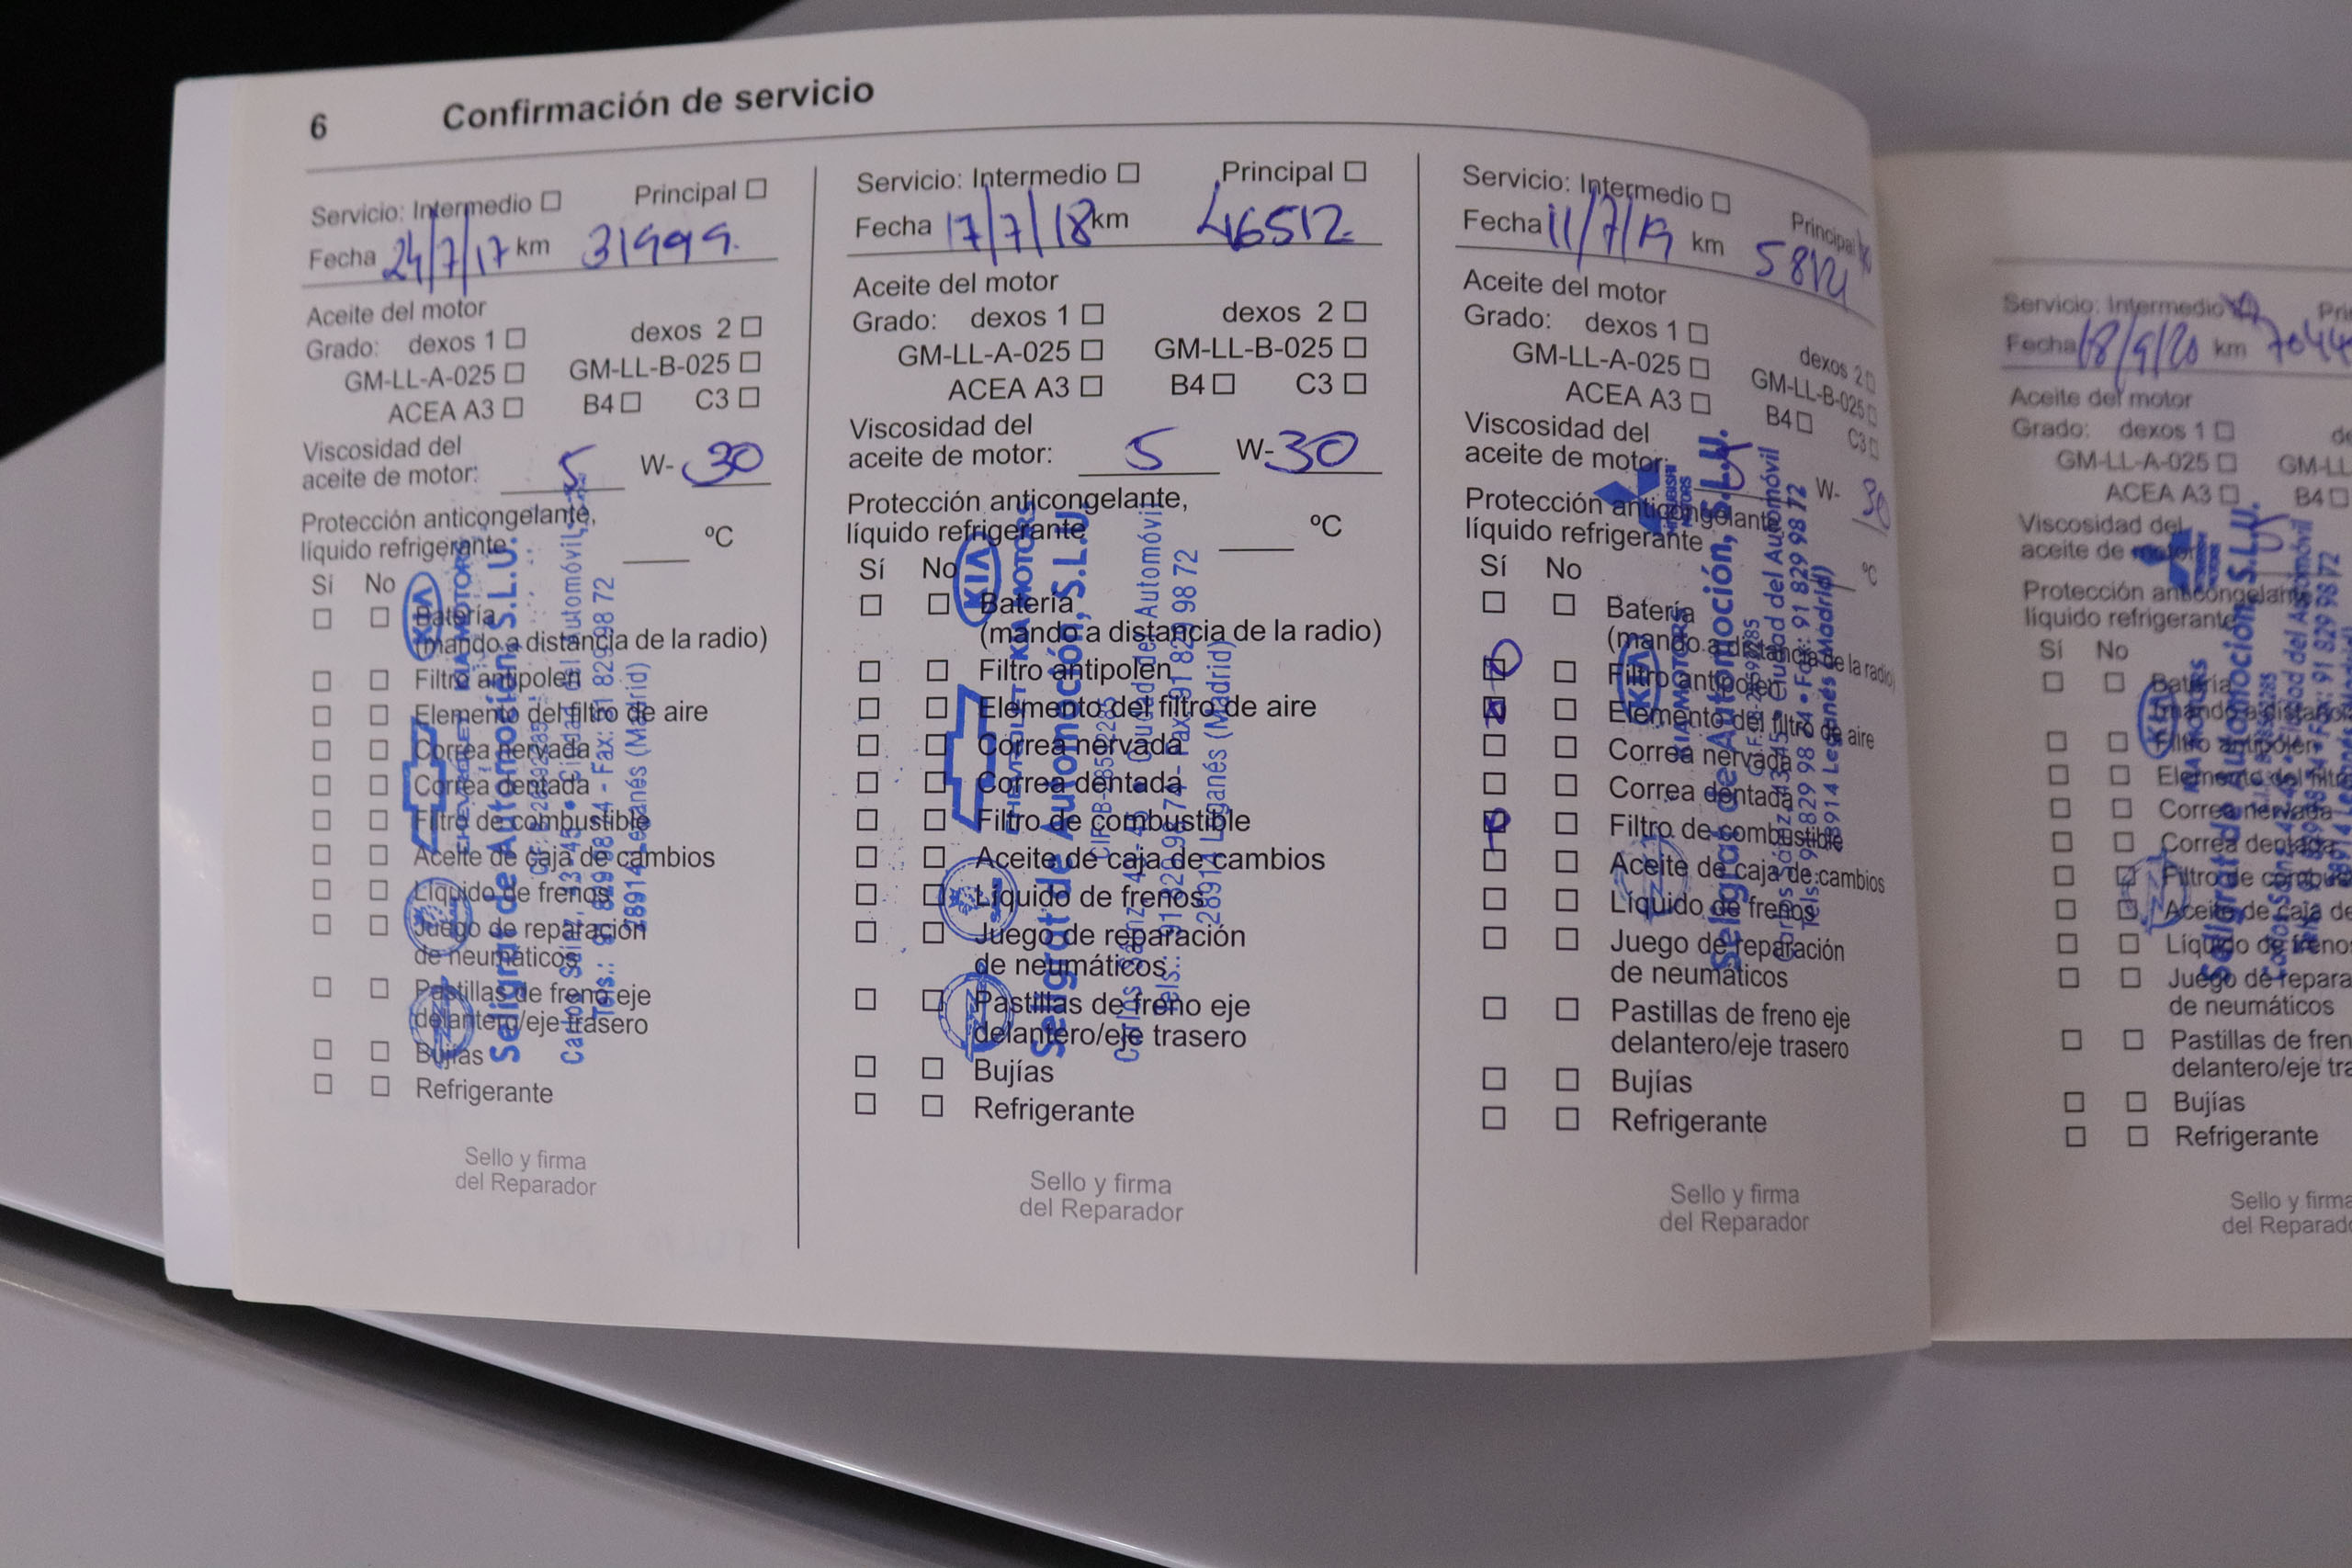 6 Confirmación de servicio
Servicio: Intermedio □ Principal □
Fecha 24/7/17 km 31999.
Aceite del motor
Grado: dexos 1 □ dexos 2 □
GM-LL-A-025 □ GM-LL-B-025 □
ACEA A3 □ B4 □ C3 □
Viscosidad del
aceite de motor: 5 W- 30
Protección anticongelante,
líquido refrigerante ºC
Sí No
□ □ Batería
(mando a distancia de la radio)
□ □ Filtro antipolen
□ □ Elemento del filtro de aire
□ □ Correa nervada
□ □ Correa dentada
□ □ Filtro de combustible
□ □ Aceite de caja de cambios
□ □ Líquido de frenos
□ □ Juego de reparación
de neumáticos
□ □ Pastillas de freno eje
delantero/eje trasero
□ □ Bujías
□ □ Refrigerante
Sello y firma
del Reparador
KIA KIA MOTORS
CHEVROLET
Seligrat de Automoción, S.L.U.
28914 Leganés (Madrid)
Servicio: Intermedio □ Principal □
Fecha 17/7/18 km 46512
Aceite del motor
Grado: dexos 1 □ dexos 2 □
GM-LL-A-025 □ GM-LL-B-025 □
ACEA A3 □ B4 □ C3 □
Viscosidad del
aceite de motor: 5 W- 30
Protección anticongelante,
líquido refrigerante ºC
Sí No
□ □ Batería
(mando a distancia de la radio)
□ □ Filtro antipolen
□ □ Elemento del filtro de aire
□ □ Correa nervada
□ □ Correa dentada
□ □ Filtro de combustible
□ □ Aceite de caja de cambios
□ □ Líquido de frenos
□ □ Juego de reparación
de neumáticos
□ □ Pastillas de freno eje
delantero/eje trasero
□ □ Bujías
□ □ Refrigerante
Sello y firma
del Reparador
KIA KIA MOTORS
CHEVROLET
Seligrat de Automoción, S.L.U.
28914 Leganés (Madrid)
Servicio: Intermedio □ Principal
Fecha 11/7/19 km
Aceite del motor
Grado: dexos 1 □ dexos 2 □
GM-LL-A-025 □ GM-LL-B-025 □
ACEA A3 □ B4 □ C3 □
Viscosidad del
aceite de motor: 5 W- 30
Protección anticongelante,
líquido refrigerante ºC
Sí No
□ □ Batería
(mando a distancia de la radio)
□ Filtro antipolen
□ Elemento del filtro de aire
□ □ Correa nervada
□ □ Correa dentada
□ Filtro de combustible
□ □ Aceite de caja de cambios
□ □ Líquido de frenos
□ □ Juego de reparación
de neumáticos
□ □ Pastillas de freno eje
delantero/eje trasero
□ □ Bujías
□ □ Refrigerante
Sello y firma
del Reparador
MITSUBISHI MOTORS
KIA KIA MOTORS
Seligrat de Automoción, S.L.U.
28914 Leganés (Madrid)
Servicio: Intermedio
Fecha 18/9/20 km
Aceite del motor
Grado: dexos 1 □
GM-LL-A-025 □ GM-LL
ACEA A3 □ B4
Viscosidad del
aceite de motor
Protección anticongelante
líquido refrigerante
Sí No
□ □ Batería
□ □ Filtro antipolen
□ □ Elemento del filtro
□ □ Correa nervada
□ □ Correa dentada
□ □ Filtro de
□ □ Aceite de caja de
□ □ Líquido de
□ □ Juego de
de neumáticos
□ □ Pastillas de
□ □ Bujías
□ □ Refrigerante
Sello y firma
del
KIA
Seligrat de Automoción, S.L.U.